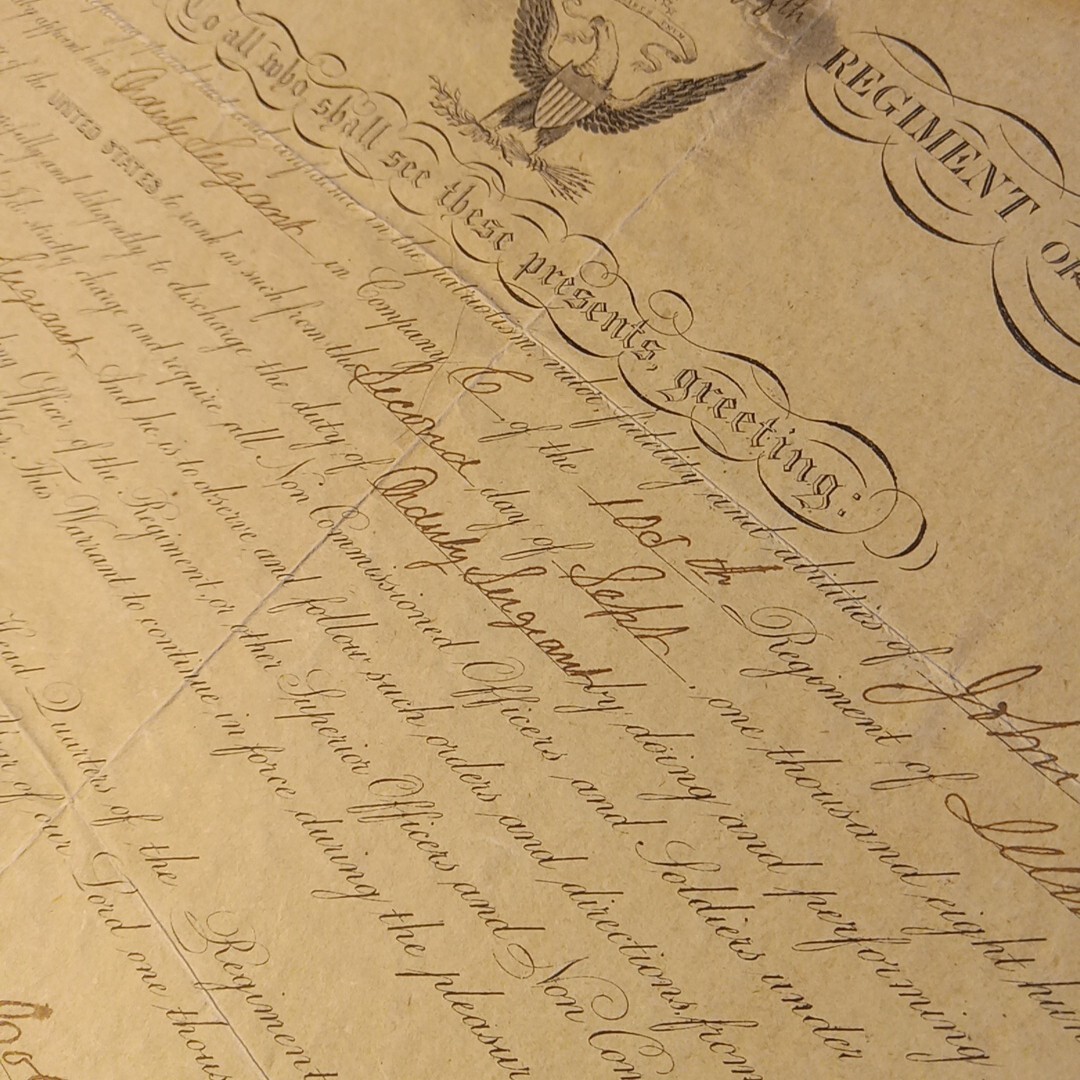 REGIMENT OF
To all who shall see these presents, greeting:
confidence in the patriotism, valor, fidelity and abilities of John
appoint him Orderly Sergeant in Company C of the 105th Regiment of
of the UNITED STATES to rank as such from the Second day of Sept, one thousand eight hun
fully and diligently to discharge the duty of Orderly Sergeant by doing and performing
strictly charge and require all Non Commissioned Officers and Soldiers under
Sergeant And he is to observe and follow such orders and directions from
Officer of the Regiment, or other Superior Officers and Non Com
This Warrant to continue in force during the pleasur
Head Quarters of the Regiment
of our Lord one thous